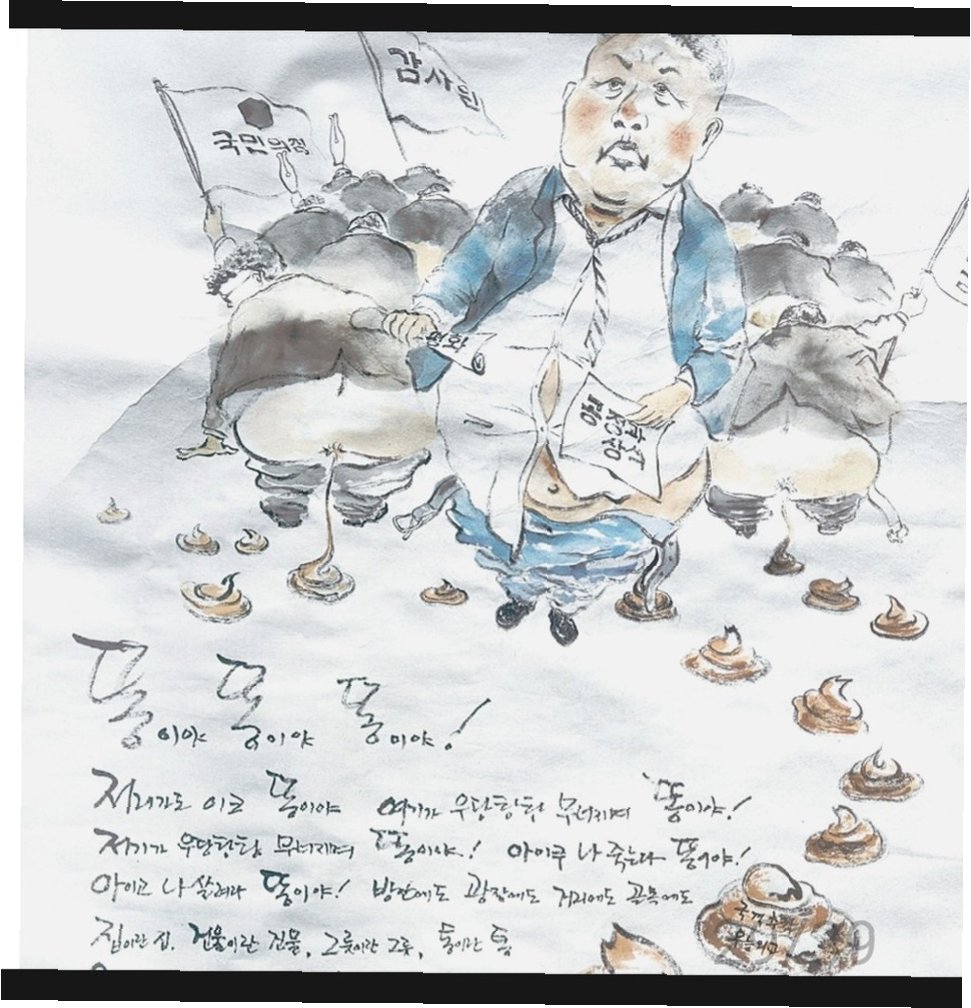 감사원
국민의정
평화
똥이야 똥이야 똥이야!
저리가도 아코 똥이야 여기가 우당탕탕 무너지며 똥이야!
저기가 우당탕탕 무너지며 똥이야! 아이쿠 나 죽는다 똥이야!
아이고 나 살려라 똥이야! 방안에도 광장에도 거리에도 골목에도
집이란 집, 건물이란 건물, 그릇이란 그릇, 똥이란 똥
국격추락